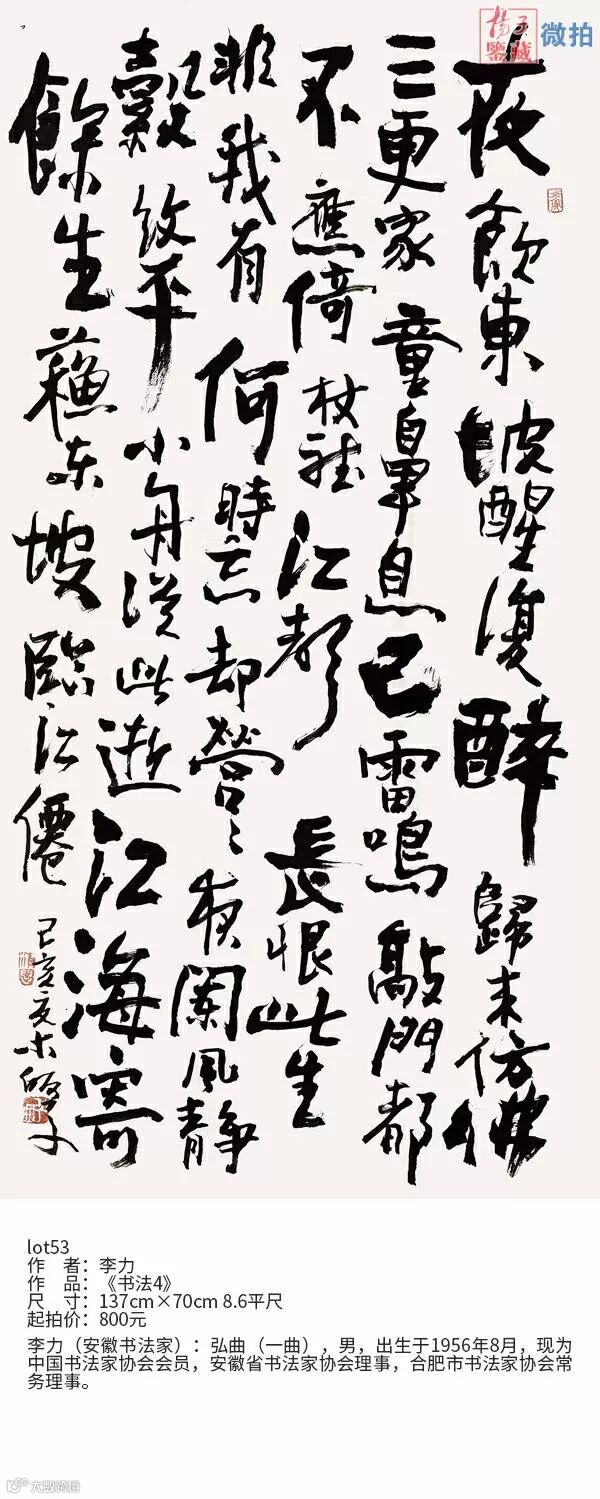 揚子
鑒藏
微拍
夜飲東坡醒復醉歸来仿佛
三更家童鼻息已雷鳴敲門都
不應倚杖聽江長恨此生
非我有何時忘却營々夜闌風静
縠紋平小舟從此逝江海寄
餘生蘇东坡臨江僊
己亥夏末
lot53
作 者：李力
作 品：《书法4》
尺 寸：137cm×70cm 8.6平尺
起拍价：800元
李力（安徽书法家）：弘曲（一曲），男，出生于1956年8月，现为
中国书法家协会会员，安徽省书法家协会理事，合肥市书法家协会常
务理事。
大数跨境